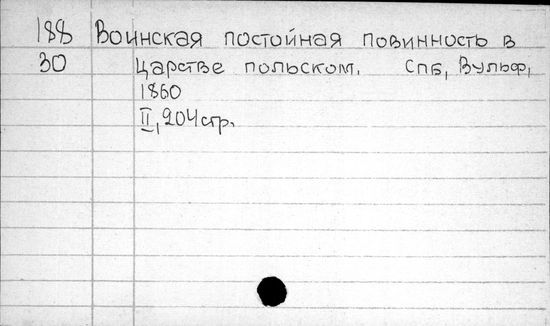 188 Воинская постойная повинность в
30 Царстве польском. СПБ, Вульф,
1860
II, 204 стр.